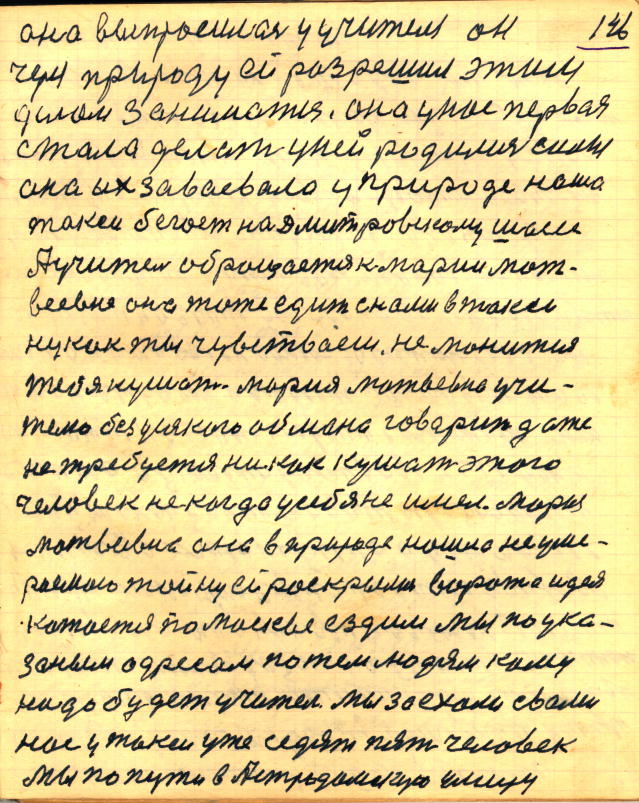 она выпросилась у учителя он 146
чем природу ей разрешил этим
делом заниматся. она у нас первая
стала делать у ней родилис силы
она их заваевала у природе наша
такси бегает на Дмитровскому шассе
Аучител обращается к марии мат-
веевне она тоже едит снами в такси
ну как ты чувстваеш. не манится
тебя кушат. мария матвевна учи-
телю без усякого обмана говарит даже
не требуется никак кушат этого
человек не когда у себя не имел. мария
матвевна она в природе нашла не уме-
раемою тайну ей роскрыли ворота идея
катается по Маскве ездим мы по ука-
заным адресам по тем людям кому
надо будет учител. мы заехали свали
нас у такси уже седят пят человек
мы по пути в Астрадамскую улицу